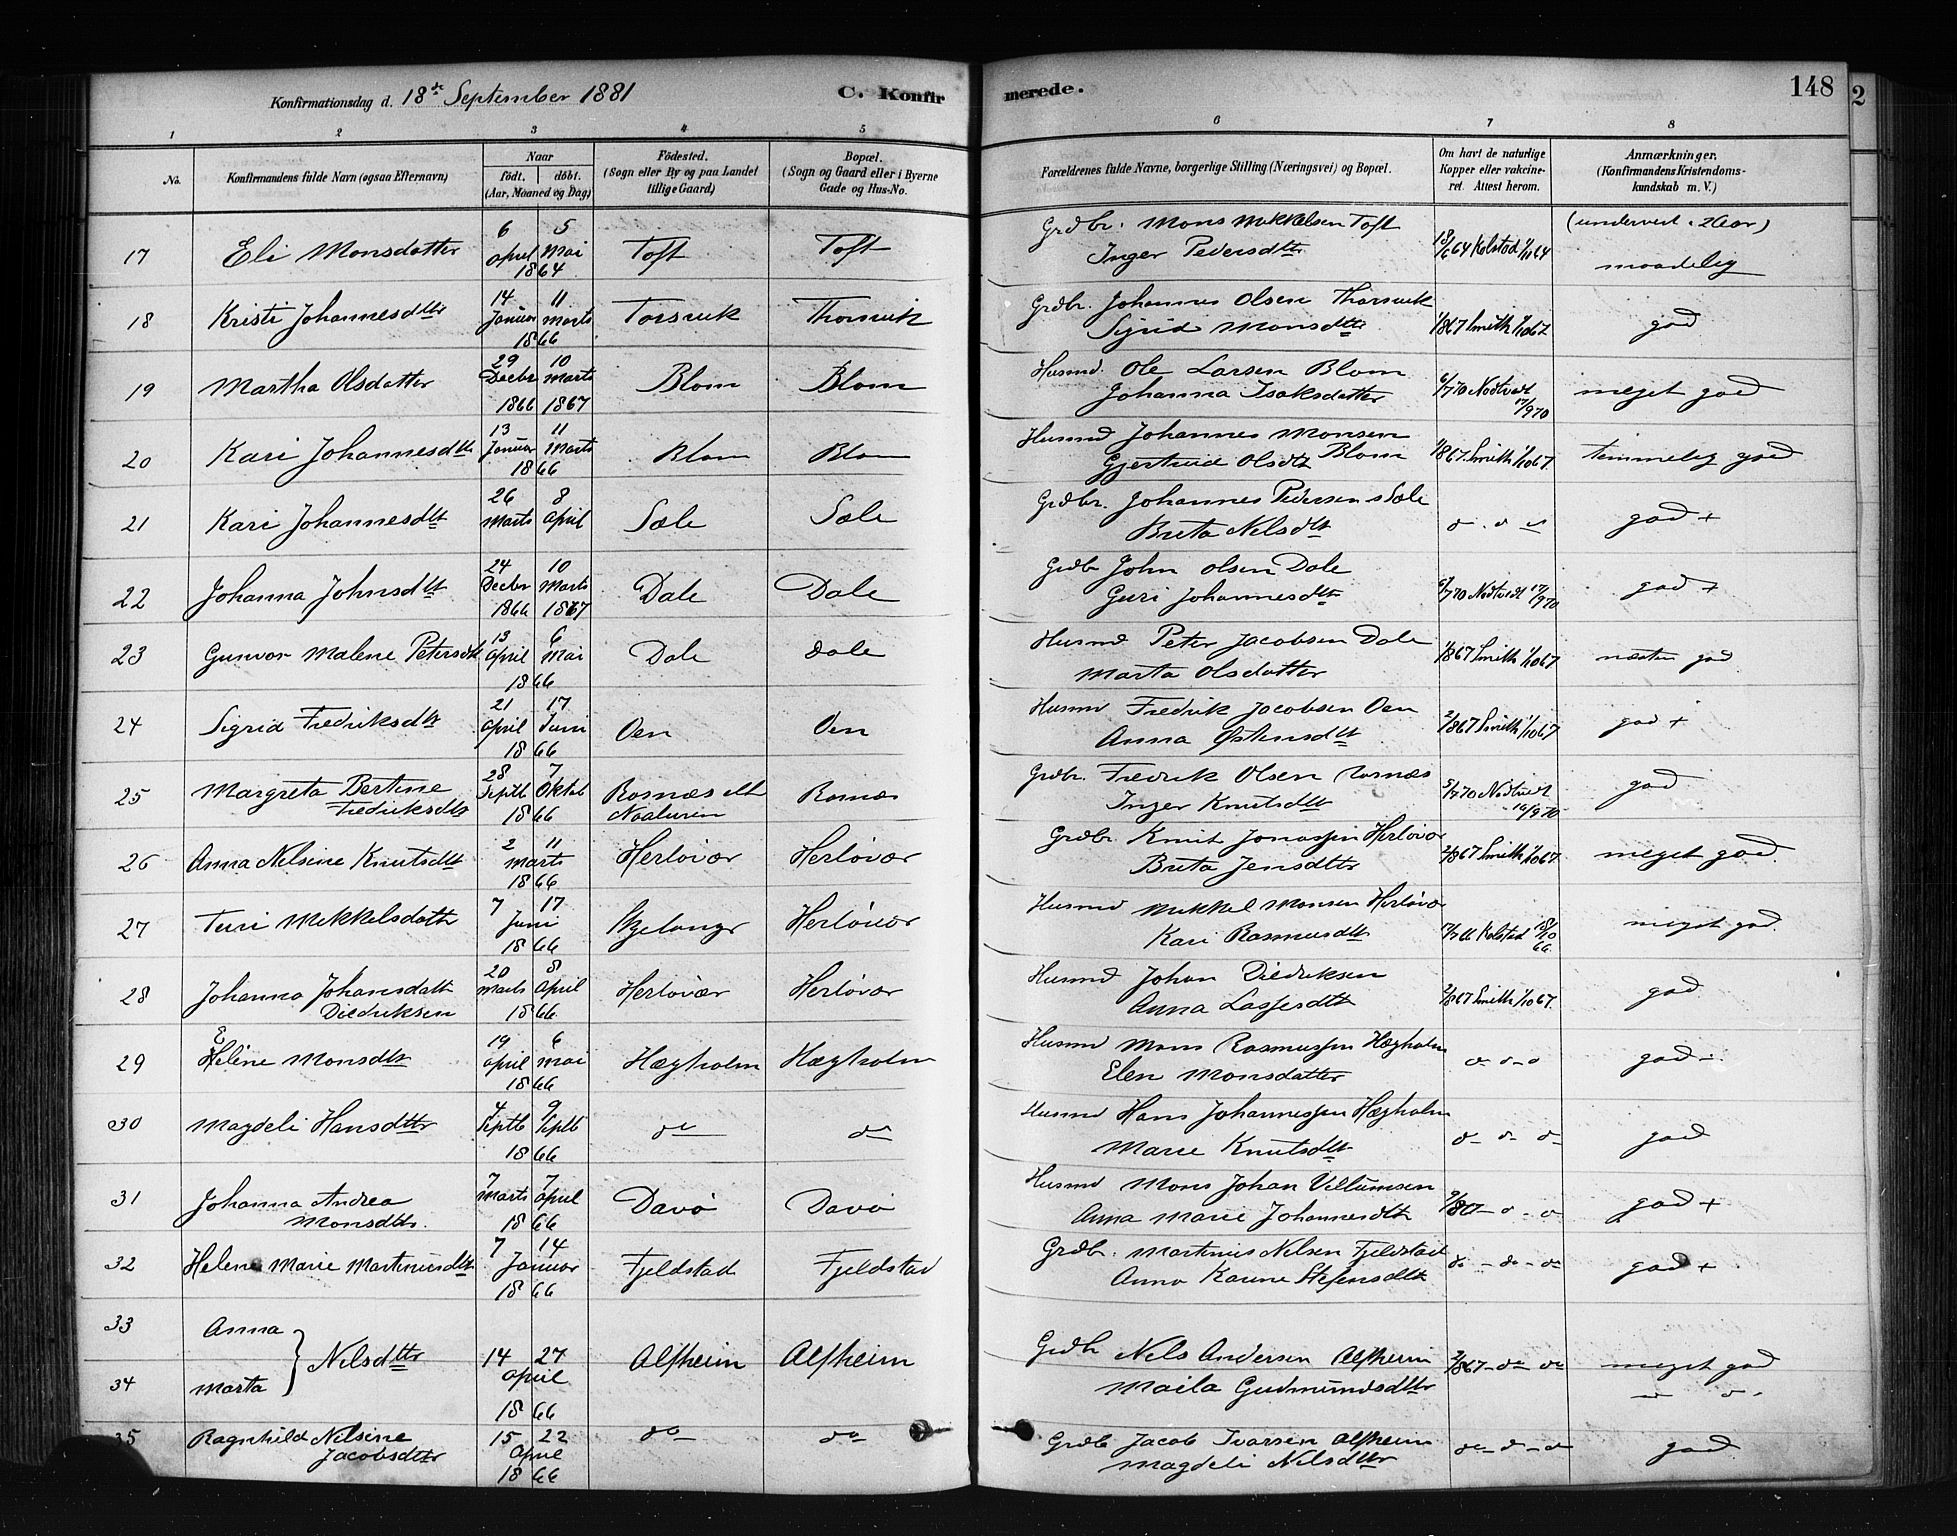 Konfirmationsdag d. 18de September 1881 C. Konfirmerede. 148
2
1 2 3 4 5 6 7 8
No. Konfirmandens fulde Navn (ogsaa Efternavn) Naar født, døbt. (Aar, Maaned og Dag) Fødested. (Sogn eller By og paa Landet tillige Gaard) Bopæl. (Sogn og Gaard eller i Byerne Gade og Hus-No. Forældrenes fulde Navne, borgerlige Stilling (Næringsvei) og Bopæl. Om havt de naturlige Kopper eller vakcineret. Attest herom. Anmærkninger. (Konfirmandens Kristendomskundskab m. V.)
17 Eli Monsdatter 6 April 5 Mai 1864 Toft Toft Grdbr. Mons Mikkelsen Toft
Inger Pedersdttr 18/6 64 Kolstad 1/11 64 (undervist i 2 Aar) maadelig
18 Kristi Johannesdttr 14 Januar 11 Marts 1866 Torsvik Thorsvik Grdbr. Johannes Olsen Thorsvik
Sigrid Monsdttr 1/8 67 Smith 1/10 67 god
19 Martha Olsdatter 29 Decbr 1866 10 Marts 1867 Blom Blom Husmd. Ole Larsen Blom
Johanna Isaksdatter 6/7 70 Nodtvedt 17/9 70 meget god
20 Kari Johannesdttr 13 Januar 11 Marts 1866 Blom Blom Husmd Johannes Monsen
Gjertrud Olsdtr Blom 1/8 67 Smith 1/10 67 temmelig god
21 Kari Johannesdtr 26 Marts 8 April Sæle Sæle Grdbr. Johannes Pedersen Sæle
Brita Nilsdtr god +
22 Johanna Johnsdtr 24 Decbr 1866 10 Marts 1867 Dale Dale Grdbr John Olsen Dale
Guri Johannesdtr 6/7 70 Nodtvedt 17/9 70 god +
23 Gunvor Malene Petersdtr 13 April 6 Mai 1866 Dale Dale Husmd Peter Jacobsen Dale
Marta Olsdatter 1/8 67 Smith 1/10 67 næsten god
24 Sigrid Fredriksdtr 21 April 17 Juni 1866 Oen Oen Husmd Fredrik Jacobsen Oen
Anna Østensdtr 2/8 67 Smith 1/10 67 god +
25 Margreta Bertine Fredriksdtr 28 Septb 7 Oktob 1866 Rosnæs Rosnæs Grdbr. Fredrik Olsen Rosnæs
Inger Knutsdtr 5/7 70 Nodtvedt 16/9 70 god
26 Anna Nelsine Knutsdtr 2 11 Marts 1866 Herløvær Herløvær Grdbr Knut Jonassen Herløvær
Brita Jensdtr 2/8 67 Smith 1/10 67 meget god
27 Turi Mikkelsdattr 7 17 Juni 1866 Herløvær Husmd Mikkel Monsen Herløvær
Kari Rasmusdtr Kolstad meget god.
28 Johanna Johansdatt Diedriksen 20 Marts 8 April 1866 Herløvær Herløvær Husmd Johan Diedriksen
Anna Lassesdtr 2/8 67 Smith 1/10 67 god
29 Heléne Monsdtr 19 April 6 Mai 1866 Hægholm Hægholm Husmd Mons Rasmussen Hægholm
Elen Monsdatter do do do god
30 Magdeli Hansdttr 4 Septb 9 Septb 1866 do do Husmd Hans Johannessen Hægholm
Marie Knutsdtr do do do god
31 Johanna Andrea Monsdtr. 7 Marts 7 April 1866 Davø Davø Husmd Mons Johan Villumsen
Anna Marie Johannesdtr god +
32 Helene Marie Martinusdtr 7 14 Januar 1866 Fjeldstad Fjeldstad Grdbr. Martinus Nilsen Fjeldstad
Anna Karine Stefensdtr do - do - do god +
33 Anna
34 Marta } Nilsdttr 14 27 April 1866 Alfheim Alfheim Grdbr Nils Andersen Alfheim
Maila Gudmundsdttr 2/8 67 - do do meget god
35 Ragnhild Nilsine Jacobsdttr 15 22 April 1866 do do Grdbr Jacob Ivarsen Alfheim
Magdeli Nilsdttr do - do - do god